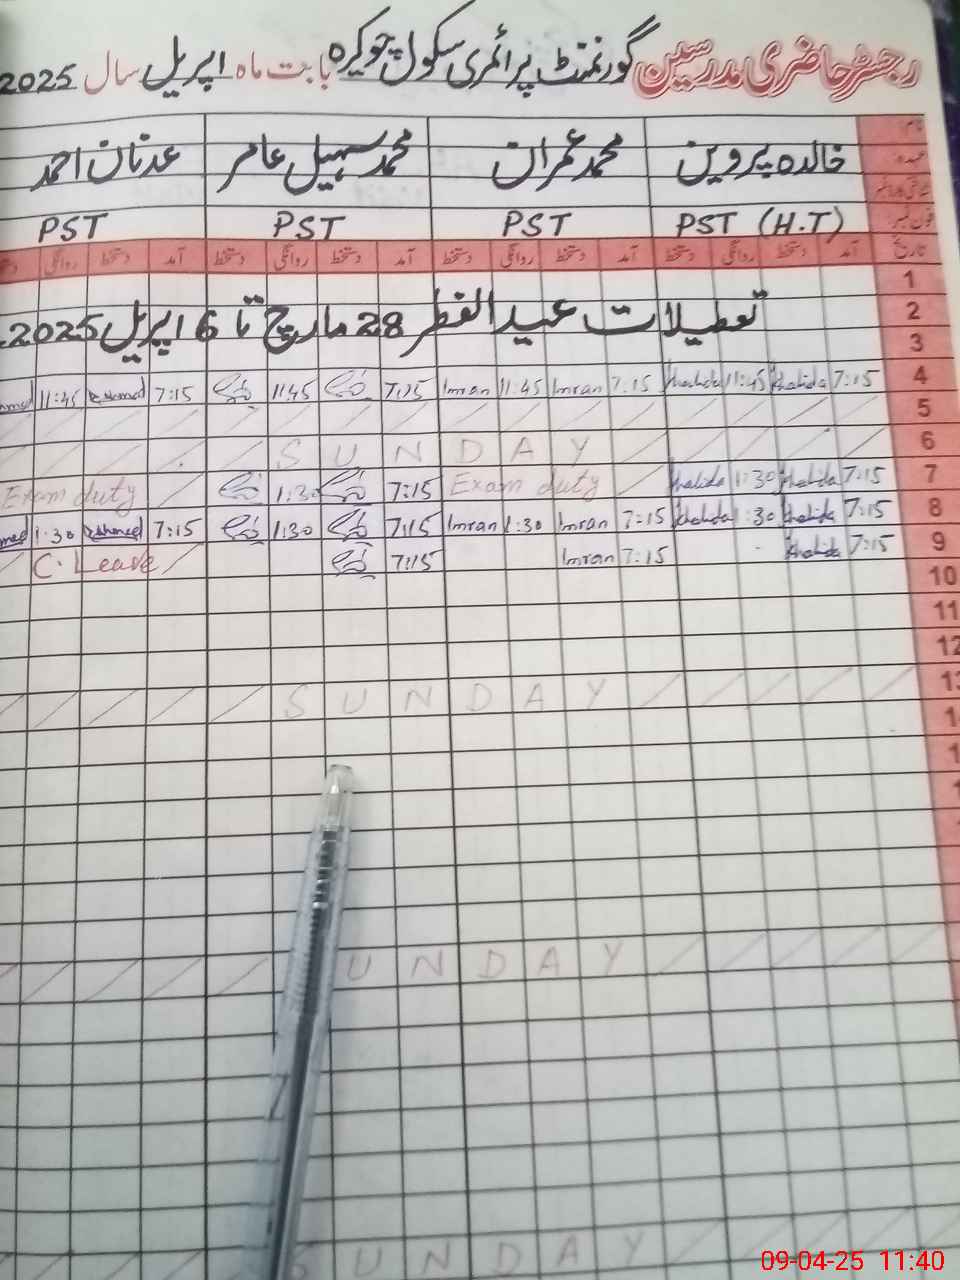 رجسٹر حاضری مدرسین گورنمنٹ پرائمری سکول چوکیرہ بابت ماہ اپریل سال 2025
نام:
عہدہ
خالدہ پروین محمد عمران محمد سہیل عامر عدنان احمد
PST (H.T) PST PST PST
تاریخ آمد دستخط روانگی دستخط آمد دستخط روانگی دستخط آمد دستخط روانگی دستخط آمد دستخط روانگی
1
2
تعطیلات عید الفطر 28 مارچ تا 6 اپریل 2025
3
4 7:15 Khalida 11:45 Khalida 7:15 Imran 11:45 Imran 7:15 11:45 7:15 11:45
5
6 SUNDAY
7 7:15 Khalida 1:30 Khalida Exam duty 7:15 1:30 Exam duty
8 7:15 Khalida 1:30 Khalida 7:15 Imran 1:30 Imran 7:15 1:30 7:15 1:30
9 7:15 Khalida 7:15 Imran 7:15 C. Leave
10
11
12
13 SUNDAY
UNDAY
SUNDAY
09-04-25 11:40